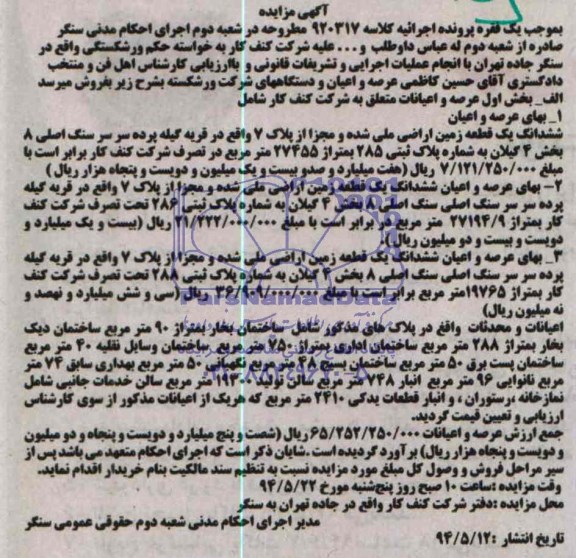 آگهی مزایده
بموجب یک فقره پرونده اجرائیه کلاسه ۹۲۰۳۱۷ مطروحه در شعبه دوم اجرای احکام مدنی سنگر
صادره از شعبه دوم له عباس داوطلب و ... علیه شرکت کنف کار به خواسته حکم ورشکستگی واقع در
سنگر جاده تهران با انجام عملیات اجرایی و تشریفات قانونی و باارزیابی کارشناس اهل فن و منتخب
دادگستری آقای حسین کاظمی عرصه و اعیان و دستگاههای شرکت ورشکسته بشرح زیر بفروش میرسد
الف_ بخش اول عرصه و اعیانات متعلق به شرکت کنف کار شامل
۱_ بهای عرصه و اعیان
ششدانگ یک قطعه زمین اراضی ملی شده و مجزا از پلاک ۷ واقع در قریه گیله پرده سر سر سنگ اصلی ۸
بخش ۴ گیلان به شماره پلاک ثبتی ۲۸۵ بمتراژ ۲۷۴۵۵ متر مربع در تصرف شرکت کنف کار برابر است با
مبلغ ۷/۱۲۱/۲۵۰/۰۰۰ ریال (هفت میلیارد و صدو بیست و یک میلیون و دویست و پنجاه هزار ریال)
۲- بهای عرصه و اعیان ششدانگ یک قطعه زمین اراضی ملی شده و مجزا از پلاک ۷ واقع در قریه گیله
پرده سر سر سنگ اصلی سنگ اصلی ۸ بخش ۴ گیلان به شماره پلاک ثبتی ۲۸۶ تحت تصرف شرکت کنف
کار بمتراژ ۲۷۱۹۴/۹ متر مربع در برابر است با مبلغ ۲۱/۲۲۲/۰۰۰/۰۰۰ ریال (بیست و یک میلیارد و
دویست و بیست و دو میلیون ریال).
۳_ بهای عرصه و اعیان ششدانگ یک قطعه زمین اراضی ملی شده و مجزا از پلاک ۷ واقع در قریه گیله
پرده سر سر سنگ اصلی سنگ اصلی ۸ بخش ۴ گیلان به شماره پلاک ثبتی ۲۸۸ تحت تصرف شرکت کنف
کار بمتراژ ۱۹۷۶۵متر مربع برابر است با مبلغ ۳۶/۹۰۹/۰۰۰/۰۰۰ ریال (سی و شش میلیارد و نهصد و
نه میلیون ریال)
اعیانات و محدثات واقع در پلاک های مذکور شامل ساختمان بخار بمتراژ ۹۰ متر مربع ساختمان دیک
بخار بمتراژ ۲۸۸ متر مربع ساختمان اداری بمتراژ ۷۵۰ متر مربع ساختمان وسایل نقلیه ۴۰ متر مربع
ساختمان پست برق ۵۰ متر مربع ساختمان بسیج ۴۸ متر مربع نگهبانی ۵۰ متر مربع بهداری سابق ۷۴ متر
مربع نانوایی ۹۶ متر مربع انبار ۷۴۸ متر مربع سالن تولید ۱۹۳۰۰ متر مربع سالن خدمات جانبی شامل
نمازخانه ،رستوران ، و انبار قطعات یدکی ۲۴۱۰ متر مربع که هریک از اعیانات مذکور از سوی کارشناس
ارزیابی و تعیین قیمت گردید.
جمع ارزش عرصه و اعیانات ۶۵/۲۵۲/۲۵۰/۰۰۰ ریال (شصت و پنج میلیارد و دویست و پنجاه و دو میلیون
و دویست و پنجاه هزار ریال) برآورد گردیده است .شایان ذکر است که اجرای احکام متعهد می باشد پس از
سیر مراحل فروش و وصول کل مبلغ مورد مزایده نسبت به تنظیم سند مالکیت بنام خریدار اقدام نماید.
وقت مزایده :ساعت ۱۰ صبح روز پنج‌شنبه مورخ ۹۴/۵/۲۲
محل مزایده :دفتر شرکت کنف کار واقع در جاده تهران به سنگر
مدیر اجرای احکام مدنی شعبه دوم حقوقی عمومی سنگر
تاریخ انتشار :۹۴/۵/۱۲
ParsNamadData